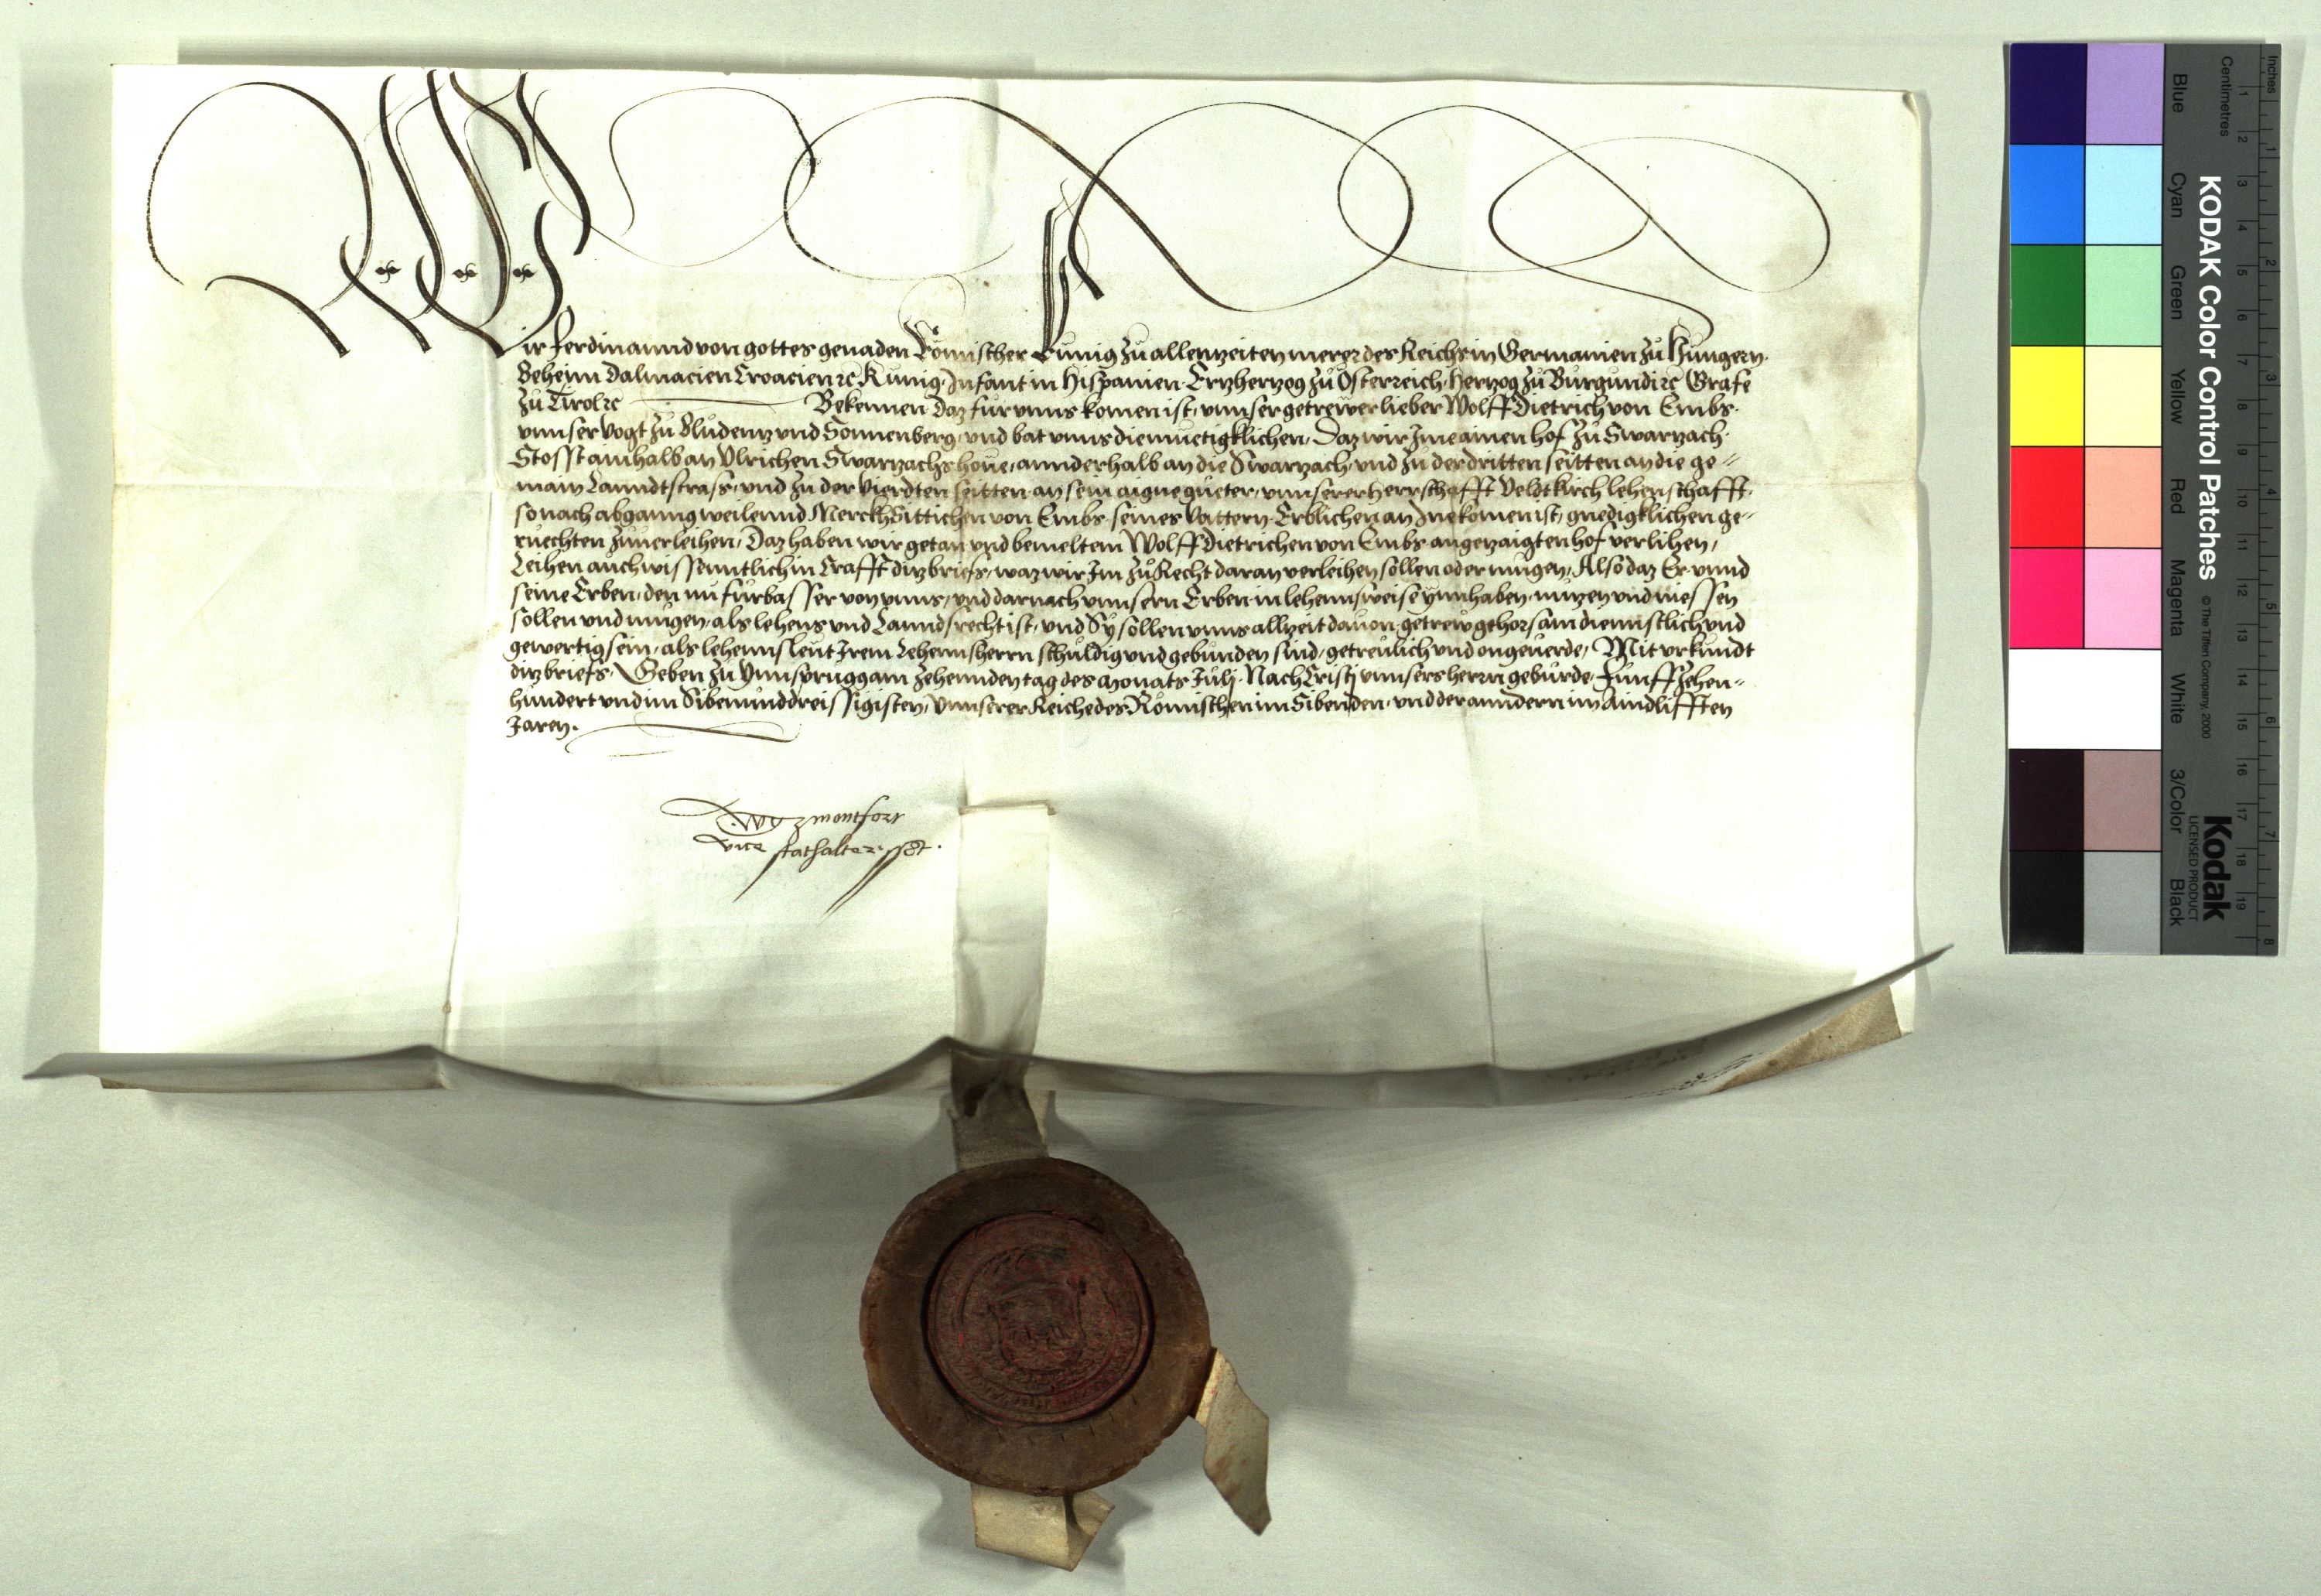 Wir Ferdinannd von gottes genaden Römischer Kunig zu allenzeiten merer des Reichs in Germanien zu Hungern.
Beheim Dalmacien Croacien ꝛc Kunig. Infant in Hispanien. Ertzhertzog zů Osterreich. Hertzog zů Burgundi ꝛc Grafe
zů Tirol ꝛc Bekennen. Daz fur unns komen ist, unnser getrewer lieber Wolff Dietrich von Embs.
unnser Vogt zů Bludentz und Sonnenberg, und bat unns diemuetigklichen, Daz wir Ime ainen hof zů Swartzach.
Stosst ainhalb an Ulrichen Swartzachs houe, annderhalb an die Swartzach, und zů der dritten seitten an die ge-
main Lanndtstrass, und zu der vierdten seitten an sein aigne gueter, unnserer Herrschafft Veldtkirch lehenschafft,
so nach abganng weilennd Merckh Sittichen von Embs seines Vattern Erblichen an Ine komen ist, gnedigklichen ge-
ruechten zuuerleihen, Daz haben wir getan und bemeltem Wolff Dietrichen von Embs angetzaigten hof verlihen,
Leihen auch wissenntlich in Crafft ditz briefs, waz wir Im zů Recht daran verleihen sollen oder mugen, Also daz Er unnd
seine Erben, den nu furbasser von unns, und darnach unnsern Erben in lehennsweise ynnhaben, nutzen und niessen
sollen und mugen, als lehens und Lanndsrecht ist, und Sy sollen unns allzeit dauon getrew gehorsam dienstlich und
gewertig sein, als lehennsleut Irem Lehennsherrn schuldig und gebunden sind, getreulich und ongeuerde, Mit urkundt
ditz briefs, Geben zů Ynnsprugg am zehennden tag des Monats Julij. Nach Cristj unnsers herrn geburde, Funffzehen-
hundert und im Sibenunddreissigisten, Unnserer Reiche des Römischen im Sibenden, und der anndern im Aindlifften
Jaren.
montfort
vice stathalter. sst.
Inches
Centimetres
KODAK Color Control Patches
© The Tiffen Company, 2000
Kodak
LICENSED PRODUCT
Blue
Cyan
Green
Yellow
Red
Magenta
White
3/Color
Black
1 2 3 4 5 6 7 8 9 10 11 12 13 14 15 16 17 18 19
1 2 3 4 5 6 7 8